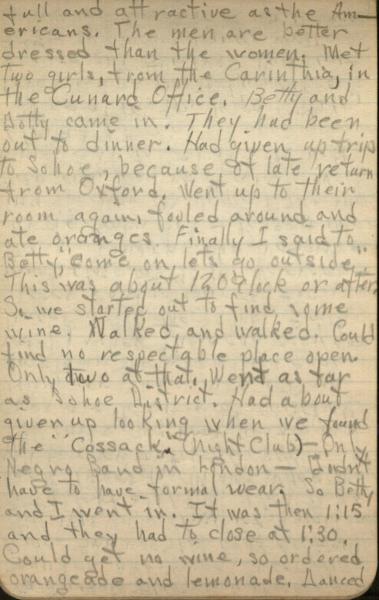 full and attractive as the Am-
ericans. The men are better
dressed than the women. Met
two girls, from the Carinthia, in
the Cunard Office. Betty and
Dotty came in. They had been
out to dinner. Had given up trip
to Sohoe, because of late return
from Oxford. Went up to their
room again, fooled around and
ate oranges. Finally I said to
Betty, "come on lets go outside."
This was about 12 O'clock or after.
So we started out to find some
wine. Walked and walked. Could
find no respectable place open.
Only two at that. Went as far
as Sohoe District. Had about
given up looking when we found
the "Cossack" (Night Club) - Only
Negro Band in London - Didn't
have to have formal wear. So Betty
and I went in. It was then 1:15
and they had to close at 1:30.
Could get no wine, so ordered
orangeade and lemonade. Danced